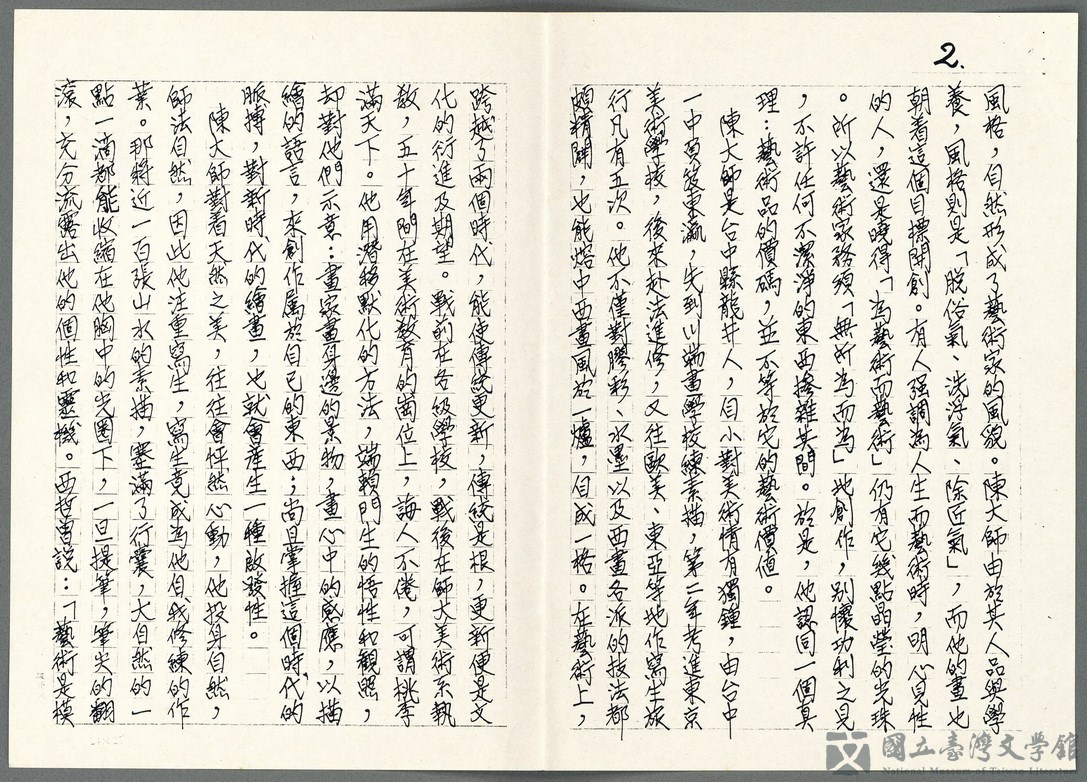 2.
風格，自然形成了藝術家的風貌。陳大師由於其人品學學
養，風格則是「脫俗氣、洗浮氣、除匠氣」，而他的畫也
朝着這個目標開創。有人強調為人生而藝術時，明心見性
的人，還是曉得「為藝術而藝術」仍有它幾點晶瑩的光珠
。所以藝術家務須「無所為而為」地創作，別懷功利之見
，不許任何不潔淨的東西摻雜其間。於是，他認同一個真
理：藝術品的價碼，並不等於它的藝術價值。
陳大師是台中縣龍井人，自小對美術情有獨鍾，由台中
一中負笈東瀛，先到川端畫學校練素描，第二年考進東京
美術學校，後來赴法進修，又往歐美、東亞等地作寫生旅
行凡有五次。他不僅對膠彩、水墨以及西畫各派的技法都
頗精闢，也能熔中西畫風於一爐，自成一格。在藝術上，
跨越了兩個時代，能使傳統更新，傳統是根，更新便是文
化的衍進及期望。戰前在各級學校，戰後在師大美術系執
教，五十年間在美術教育的崗位上，誨人不倦，可謂桃李
滿天下。他用潛移默化的方法，端賴門生的悟性和觀照，
却對他們示意：畫家畫身邊的景物，畫心中的感應，以描
繪的語言，來創作屬於自己的東西；尚且掌握這個時代的
脈搏，對新時代的繪畫，也就會產生一種啟發性。
陳大師對着天然之美，往往會怦然心動，他投身自然，
師法自然，因此他注重寫生，寫生竟成為他自我修練的作
業。那將近一百張山水的素描，塞滿了行囊，大自然的一
點一滴都能收縮在他胸中的光圈下，一旦提筆，筆尖的翻
滾，充分流露出他的個性和靈機。西哲曾說：「藝術是模
國立臺灣文學館
National Museum of Taiwan Literature